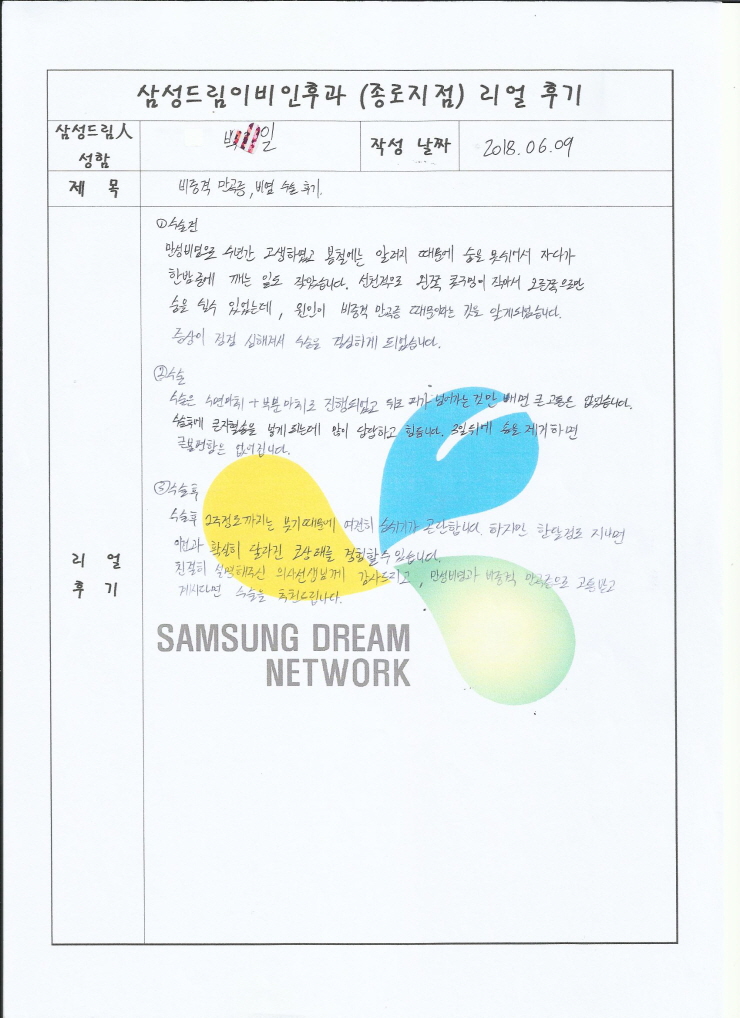 삼성드림이비인후과 (종로지점) 리얼 후기
삼성드림人
성함
백 일
작성 날짜
2018.06.09
제 목
비중격 만곡증, 비염 수술 후기.
①수술전
만성비염으로 수년간 고생하였고 봄철에는 알러지 때문에 숨을 못쉬어서 자다가
한밤중에 깨는 일도 잦았습니다. 선천적으로 왼쪽 콧구멍이 작아서 오른쪽으로만
숨을 쉴수 있었는데, 원인이 비중격 만곡증 때문이라는 것을 알게되었습니다.
증상이 점점 심해져서 수술을 결심하게 되었습니다.
②수술
수술은 수면마취 + 부분마취로 진행되었고 뒤로 피가 넘어가는 것만 빼면 큰 고통은 없었습니다.
수술후에 큰 솜을 넣게되는데 많이 답답하고 힘듭니다. 3일뒤에 솜을 제거하면
큰불편함은 없어집니다.
③수술후
수술후 1주정도까지는 붓기때문에 여전히 숨쉬기가 곤란합니다. 하지만 한달정도 지나면
이전과 확실히 달라진 코상태를 경험할수 있습니다.
친절히 설명해주신 의사선생님께 감사드리고, 만성비염과 비중격 만곡증으로 고통받고
계시다면 수술을 추천드립니다.
리 얼
후 기
SAMSUNG DREAM
NETWORK